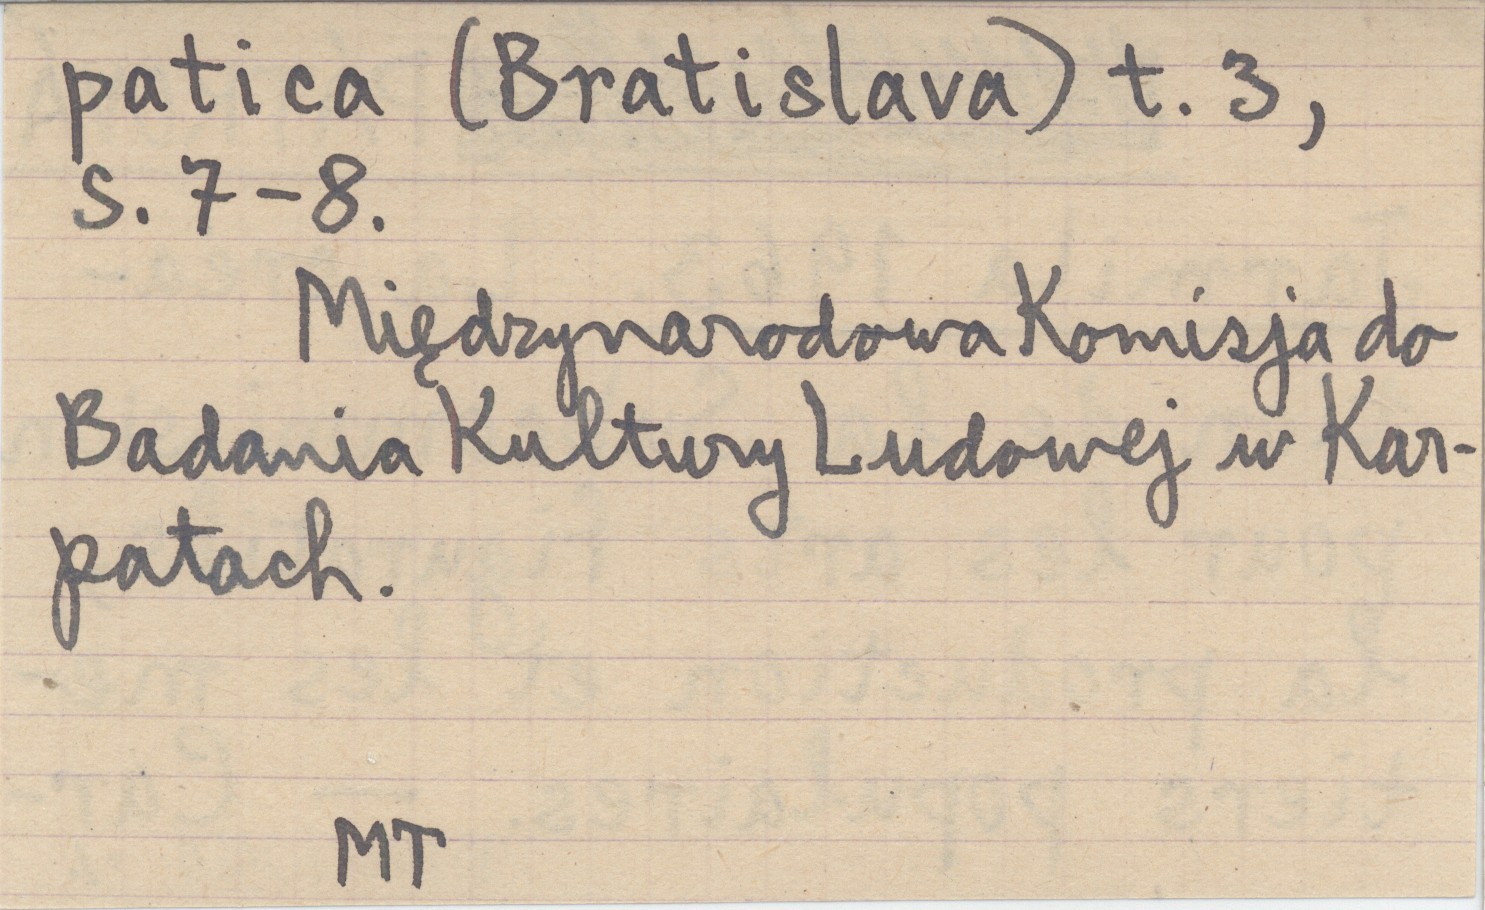 patica (Bratislava) t. 3,
s. 7-8.
Międzynarodowa Komisja do
Badania Kultury Ludowej w Kar-
patach.
MT